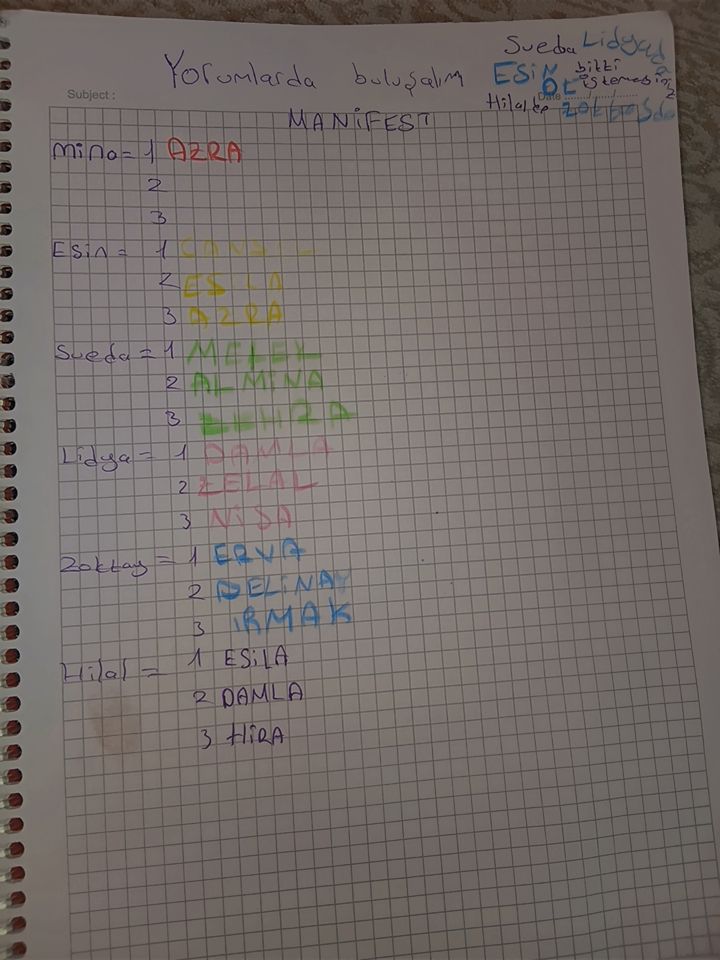 Yorumlarda buluşalım
Sueda Lidyada
ESİN bitti
ÖL istemesiniz
Hilal
Subject :
Date
MANİFEST
Mina = 1 AZRA
2
3
Esin = 1
2 ESİLA
3 AZRA
Sueda = 1 MELEK
2 ALMINA
3
Lidya = 1 DAMLA
2 ZELAL
3 NİSA
Zoktay = 1 ERVA
2 PELİNAY
3 IRMAK
Hilal = 1 ESiLA
2 DAMLA
3 HİRA